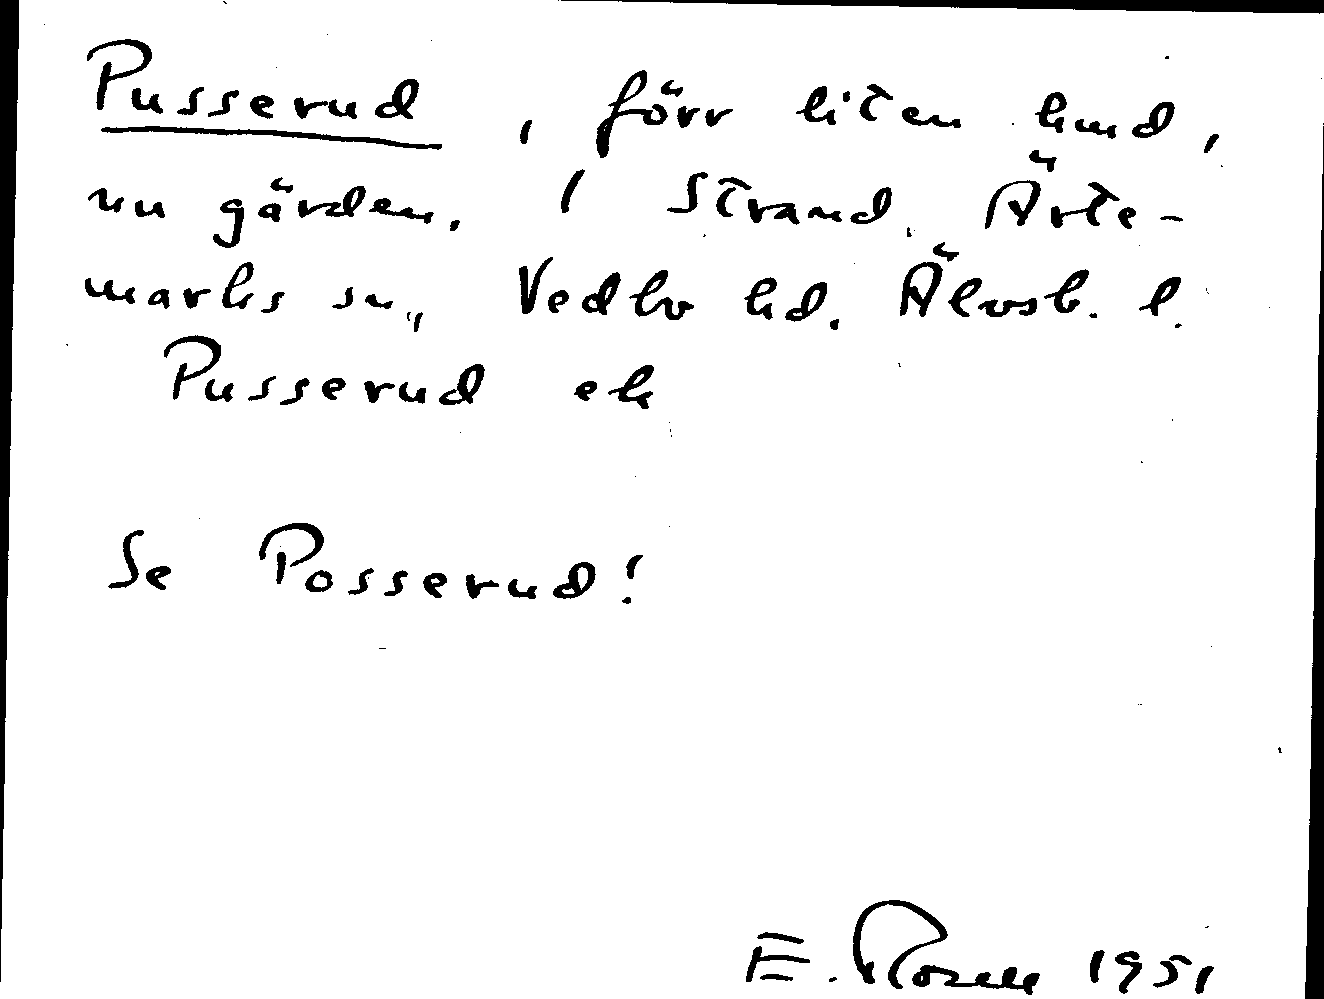 Pusserud, förr liten lund,
nu gärden. I Strand, Ärte-
marks sn., Vedbo hd. Älvsb. l.
Pusserud ek
Se Posserud!
E. Rosell 1951